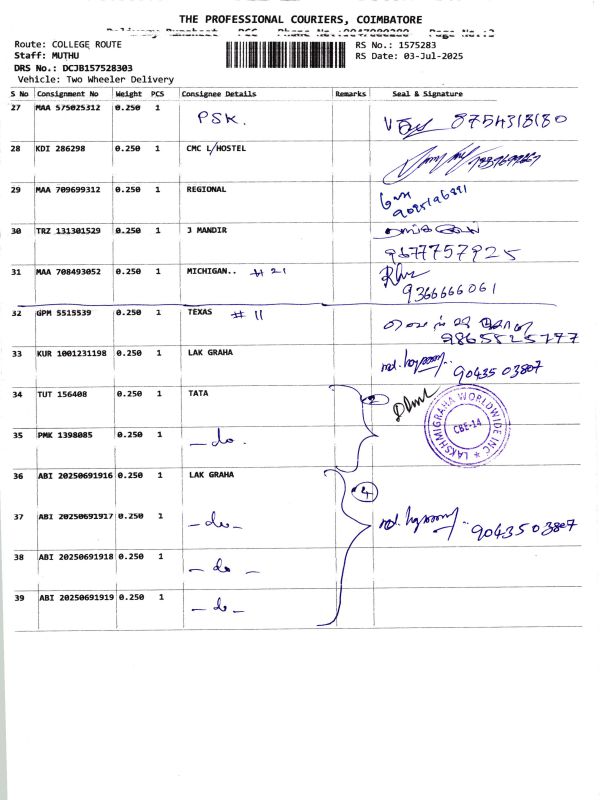 THE PROFESSIONAL COURIERS, COIMBATORE
Route: COLLEGE ROUTE
Staff: MUTHU
DRS No.: DCJB157528303
Vehicle: Two Wheeler Delivery
RS No.: 1575283
RS Date: 03-Jul-2025
S No Consignment No Weight PCS Consignee Details Remarks Seal & Signature
27 MAA 575025312 0.250 1 PSK. 8754318180
28 KDI 286298 0.250 1 CMC L/HOSTEL
29 MAA 709699312 0.250 1 REGIONAL
30 TRZ 131301529 0.250 1 J MANDIR
9677757925
31 MAA 708493052 0.250 1 MICHIGAN.. # 21
9366666061
32 GPM 5515539 0.250 1 TEXAS # 11
33 KUR 1001231198 0.250 1 LAK GRAHA 90435 03807
34 TUT 156408 0.250 1 TATA 2
35 PMK 1398085 0.250 1 - do -
LAKSHMIGRAHA WORLDWIDE INC
CBE-14
36 ABI 20250691916 0.250 1 LAK GRAHA 4
37 ABI 20250691917 0.250 1 - do - 90435 03807
38 ABI 20250691918 0.250 1 - do -
39 ABI 20250691919 0.250 1 - do -